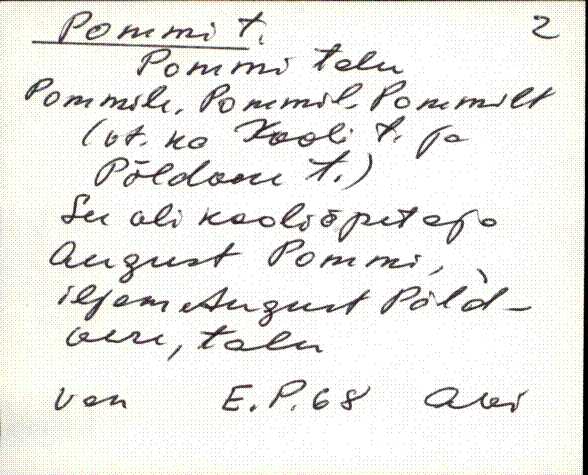 Pommi t. 2
Pommi talu
Pommile, Pommil, Pommilt
(vt. ka Kooli t. ja
Põldvere t.)
See oli kooliõpetaja
August Pommi,
iljem August Põld-
vere, talu
Vän E.P.68 Avi